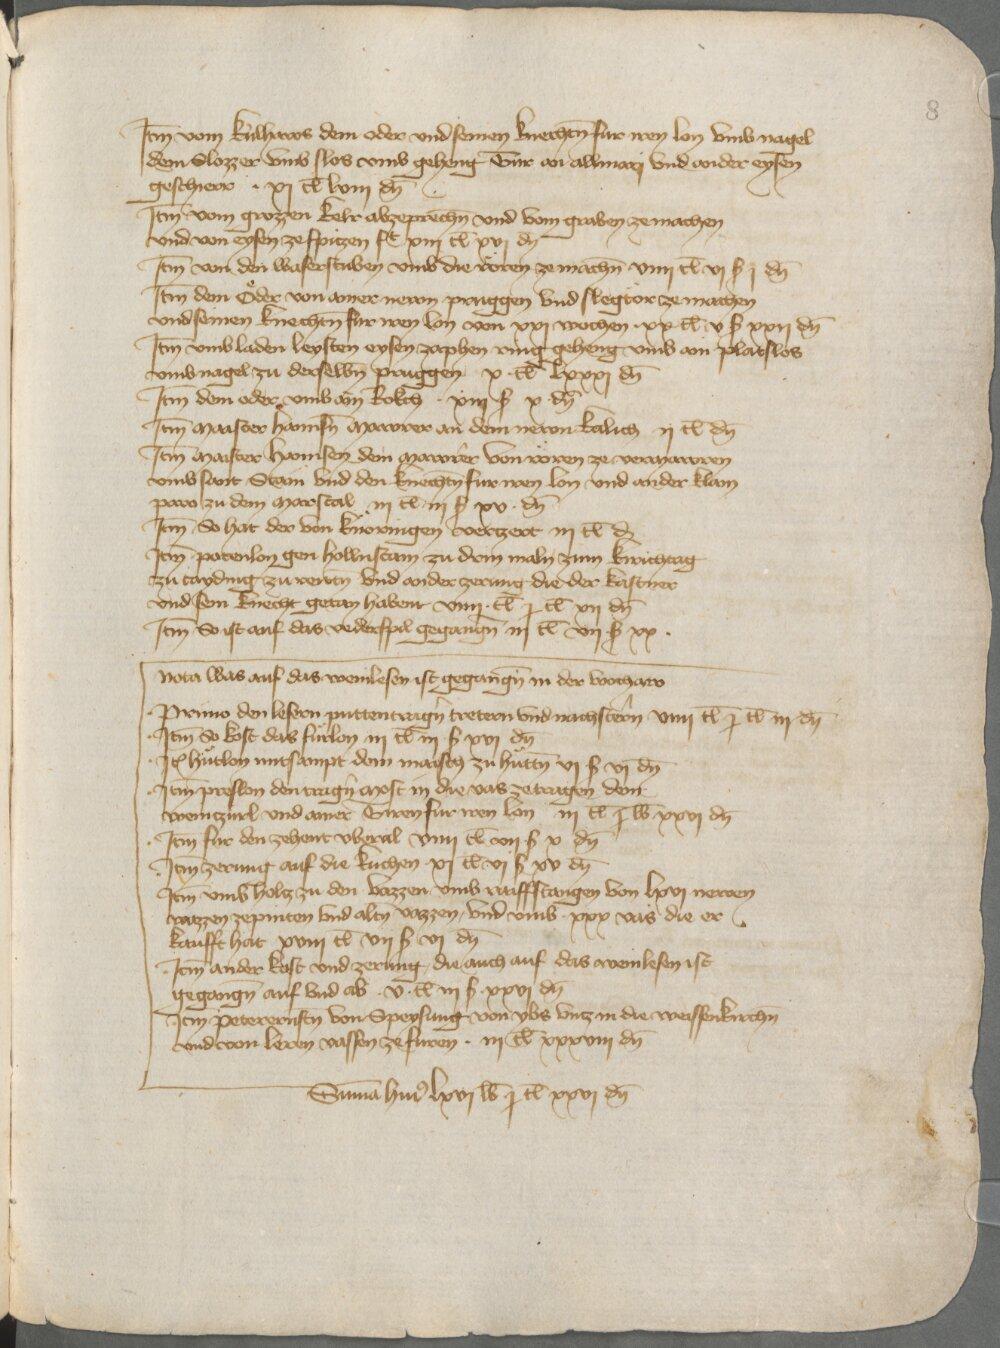 8
Itm̄ vom kulhaws dem oder vnd seinen knechtn̄ fur iren lon vmb nagel
dem Slozzer vmb slos vmb geheng Tur an allmarj vnd ander eysen
geschierr · xi tl̄ lviii dn̄
Itm̄ vom grozzen kelr abzeprechn̄ vnd vom graben ze machen
vnd von eysen ze spitzen xiii tl̄ xvi dn̄
Itm̄ von den waserstuben vmb die rören ze machn̄ viiii tl̄ vi ß i dn̄
Itm̄ dem Oͤder von ainer newn pruggen vnd slegtor ze machen
vnd seinen knechtn̄ fur iren lon von xxi wochen · xx tl̄ v ß xxii dn̄
Itm̄ vmb laden leysten eysen zaphen ring geheng vmb ain platslos
vmb nagel zu derselbn̄ pruggen x · tl̄ lxxxi dn̄
Itm̄ dem oder vmb ain Rokch · xiii ß x dn̄
Itm̄ Maister Hannsn̄ Mawrer an dem newn kalich ii tl̄ dn̄
Itm̄ Maister Hannsen dem Mawrer von rören ze vermawren
vmb sant Stain vnd den knechtn̄ fur iren lon vnd ander klain
paw zu dem Marstal iii tl̄ iii ß xv · dn̄
Itm̄ So hat der von kuͤnringen verzert iii tl̄ dn̄
Itm̄ potenlon gen Hollnstain zu drin maln̄ zum kirichtag
zu tayding zu reitn̄ vnd ander zerung die der kastner
vnd sein knecht getan habent viiii · tl̄ j tl̄ xii dn̄
Itm̄ So ist auf das vederspil gegangn̄ iii tl̄ vii ß xx ·
Nota was auf das weinlesen ist gegangn̄ in der wochaw
· Primo den lesern puttentragn̄ tretern vnd nachstern̄ viiii tl̄ j tl̄ iii dn̄
· Itm̄ So kost das fuͤrlon iii tl̄ iii ß xvi dn̄
· It̄ huͤtlon mitsampt dem maisch zu huͤttn̄ vi ß vi dn̄
· Itm̄ preslon den tragn̄ Most in die vas ze tragen dem
weinczurl vnd ainer Diren fur iren lon iii tl̄ j lb̄ xxvi dn̄
· Itm̄ fur den zehent vberal viiii tl̄ vii ß x dn̄
· Itm̄ zerung auf die kuchen xi tl̄ vi ß xv dn̄
Itm̄ vmb holtz zu den vazzen vmb raiffstangen von lxvi newen
vazzen zepinten vnd altn̄ vazzen vnd vmb · xxx vas die er
kaufft hat xviii tl̄ vii ß vi dn̄
· Itm̄ ander kost vnd zerung die auch auf das weinlesen ist
gegangn̄ auf vnd ab · v · tl̄ iii ß · xxvi dn̄
Itm̄ Peterernstn̄ von Speysung von ybs vntz in die weissenkirchn̄
vnd von leren vassen ze furen · iii tl̄ xxxviii dn̄
Summa huiꝰ lxvi lb̄ j tl̄ xxvi dn̄